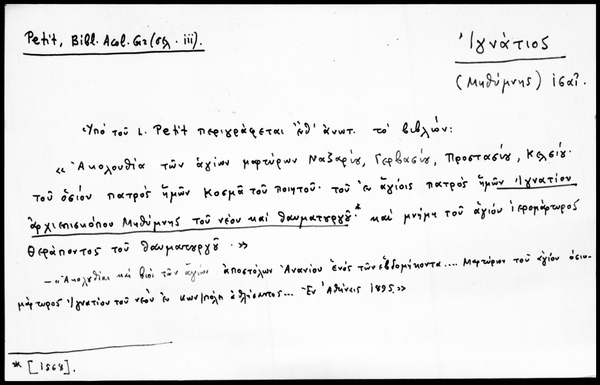 Petit, Bibl. Acol. Gr (σελ. iii).
Ἰγνάτιος
(Μηθύμνης) ισαϊ.
Ὑπὸ τοῦ L. Petit περιγράφεται ἔνθ' ἀνωτ. τὸ βιβλίον:
«Ἀκολουθία τῶν ἁγίων μαρτύρων Ναζαρίου, Γερβασίου, Προτασίου, Κελσίου·
τοῦ ὁσίου πατρὸς ἡμῶν Κοσμᾶ τοῦ ποιητοῦ· τοῦ ἐν ἁγίοις πατρὸς ἡμῶν Ἰγνατίου
ἀρχιεπισκόπου Μηθύμνης τοῦ νέου καὶ θαυματουργοῦ* καὶ μνήμη τοῦ ἁγίου ἱερομάρτυρος
Θεράποντος τοῦ θαυματουργοῦ.»
—«Ἀκολουθίαι καὶ βίοι τῶν ἁγίων ἀποστόλων Ἀνανίου ἑνὸς τῶν ἑβδομήκοντα.... Μαρτύρων τοῦ ἁγίου ὁσιο-
μάρτυρος Ἰγνατίου τοῦ νέου ἐν Κων/πόλη ἀθλήσαντος... Ἐν Ἀθήναις 1895.»
* [1568].